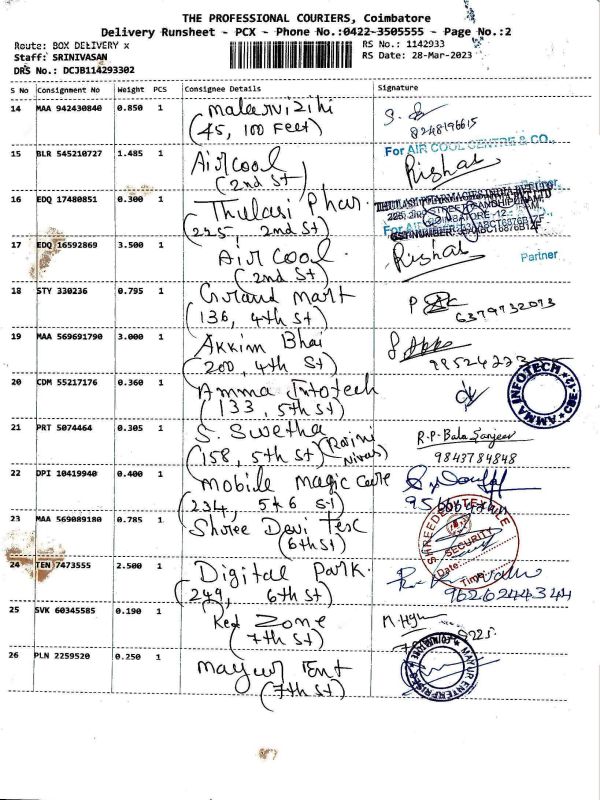 THE PROFESSIONAL COURIERS, Coimbatore
Delivery Runsheet - PCX - Phone No.:0422-3505555 - Page No.:2
Route: BOX DELIVERY x
RS No.: 1142933
Staff: SRINIVASAN
RS Date: 28-Mar-2023
DRS No.: DCJB114293302
S No Consignment No Weight PCS Consignee Details Signature
14 MAA 942430840 0.850 1 malarvizihi
(45, 100 Feet)
8248196615
15 BLR 545210727 1.485 1 Aircool
(2nd St)
For AIR COOL CENTRE & CO.,
Rishab
Partner
16 EDQ 17480851 0.300 1 Thulasi Phar.
(225, 2nd St)
THULASI PHARMACIES INDIA PVT LTD
COIMBATORE - 12.
17 EDQ 16592869 3.500 1 Air Cool
(2nd St)
For AIR
Rishab
Partner
18 STY 330236 0.795 1 Grand Mart
(136, 4th St)
6379732073
19 MAA 569691790 3.000 1 Akkim Bhai
(200, 4th St)
20 CDM 55217176 0.360 1 Amma Infotech
(133, 5th St)
AMMA INFOTECH
CBE-12
21 PRT 5074464 0.305 1 S. Swetha
(158, 5th St)
R.P. Bala Sanjeev
9843784848
22 DPI 10419940 0.400 1 mobile magic care
(234, 5th 6 St)
23 MAA 569089180 0.785 1 Shree Devi Tex
(6th St)
SHREE DEVI TEXTILE
SECURITY
Date:
Time:
24 TEN 7473555 2.500 1 Digital Park.
(249, 6th St)
9626244344
25 SVK 60345585 0.190 1 Red Zone
(7th St)
26 PLN 2259520 0.250 1 Mayur Ent
(7th St)
MAYUR ENTERPRISES